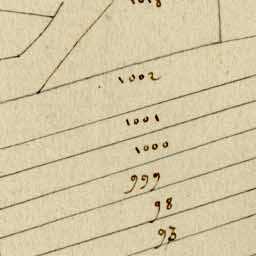 1002
1001
1000
999
98
93